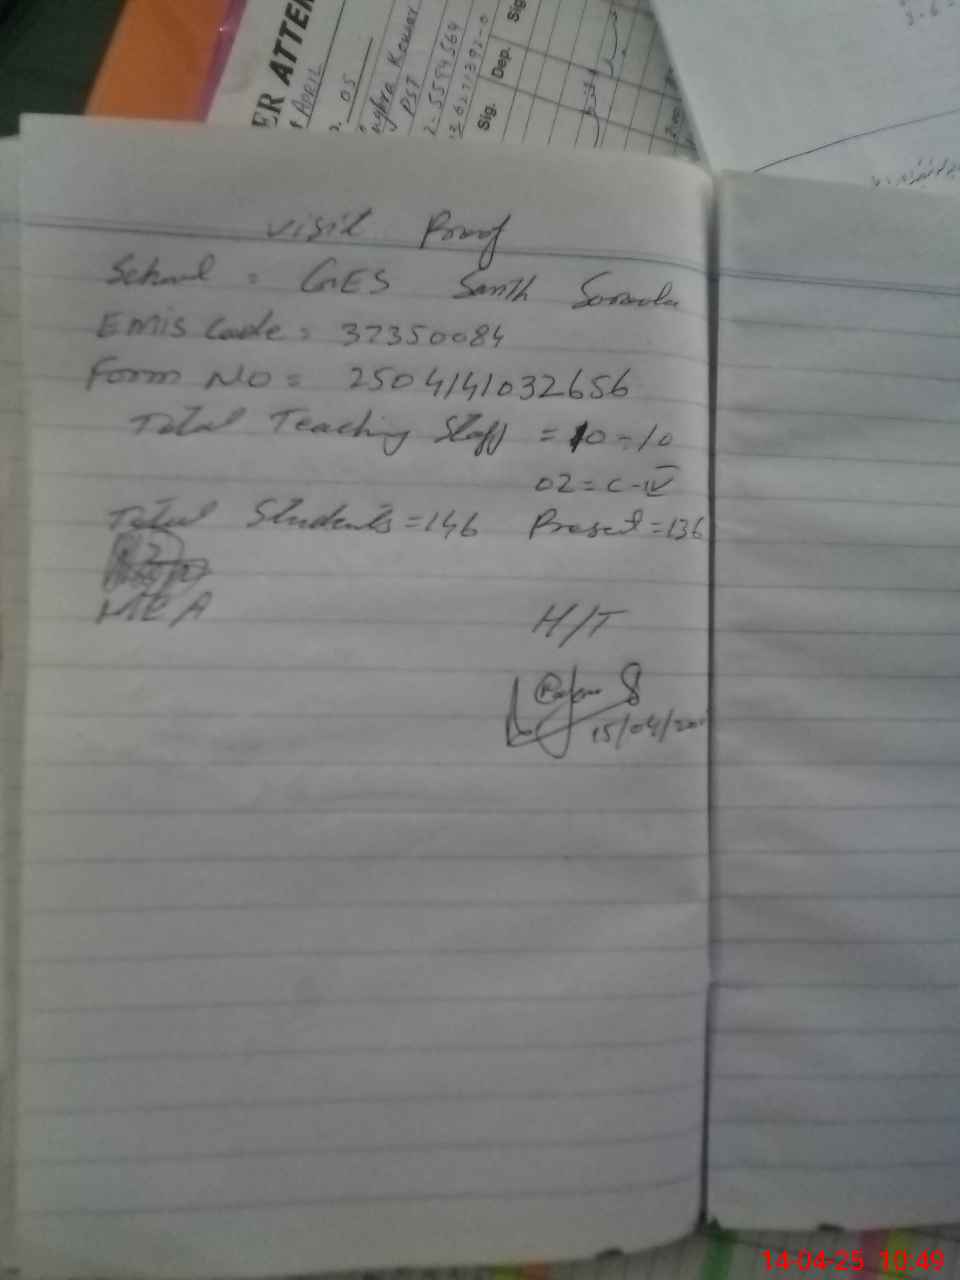 ER ATTEN
APRIL
05
Kousar
PST
2-5554564
Sig. Dep. Sig
visit Proof
School = GES Santh Saroola
Emis Code = 37350084
Form No = 2504141032656
Total Teaching Staff = 10-10
02 = C-IV
Total Students = 146 Present = 136
MEA
H/T
15/04/20
14-04-25 10:49